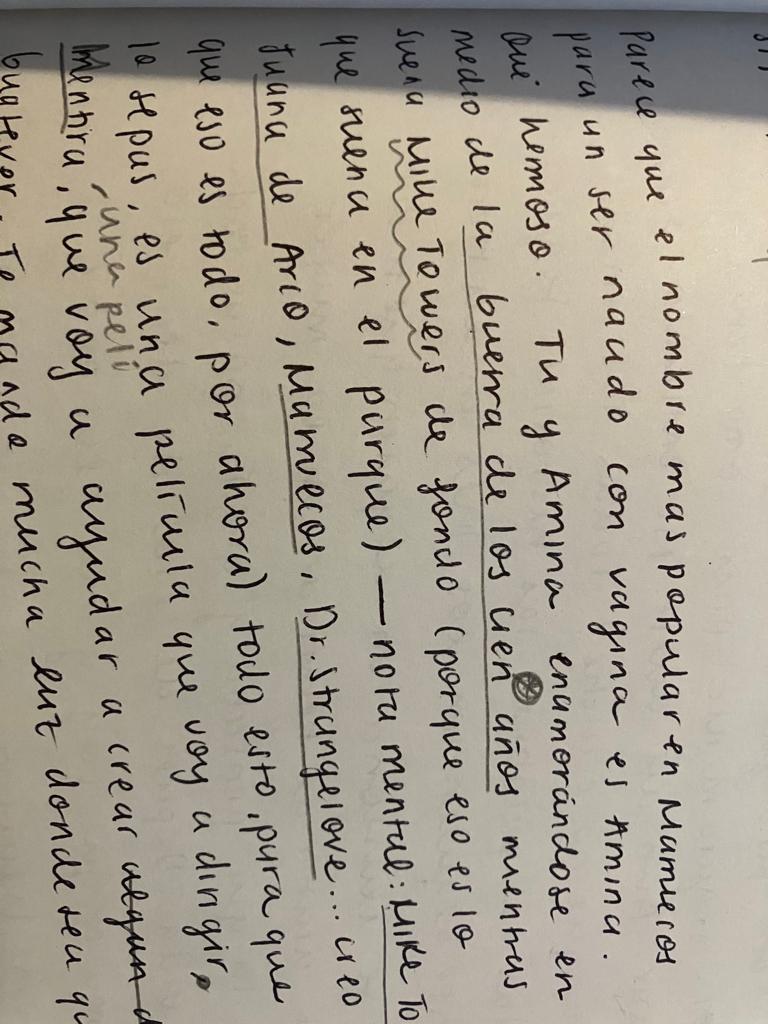 Parece que el nombre mas popular en Marruecos
para un ser naudo con vagina es Amina.
Qué hemoso. Tu y Amina enamorándose en
medio de la guerra de los cien años mientras
suena Mike Towers de fondo (porque eso es lo
que suena en el parque) — nota mental: Mike To
Juana de Arco, Marruecos, Dr. Strangelove... creo
que eso es todo, por ahora) todo esto, para que
lo sepas, es una película que voy a dirigir,
una peli
mentira, que voy a ayudar a crear algun d
Te mando mucha luz donde sea qu